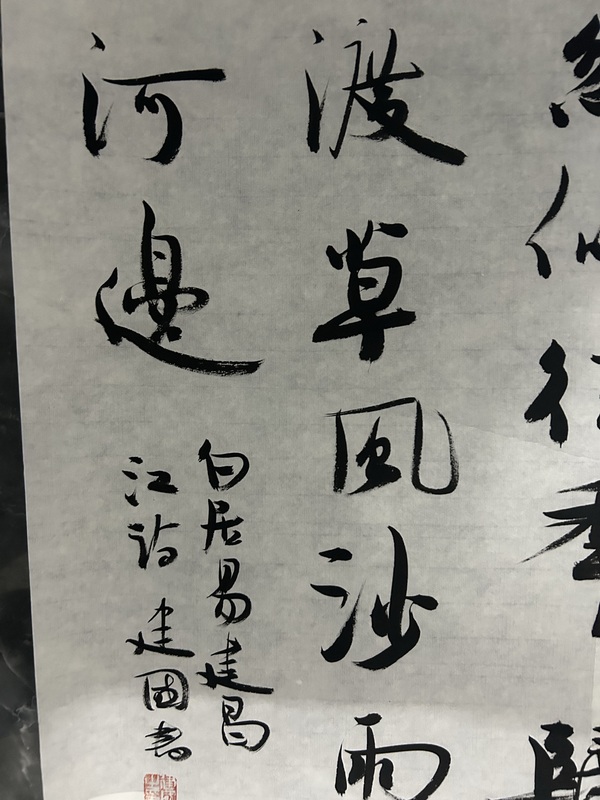 似往年歸
渡草風沙雨
河邊
白居易建昌
江詩 建國書